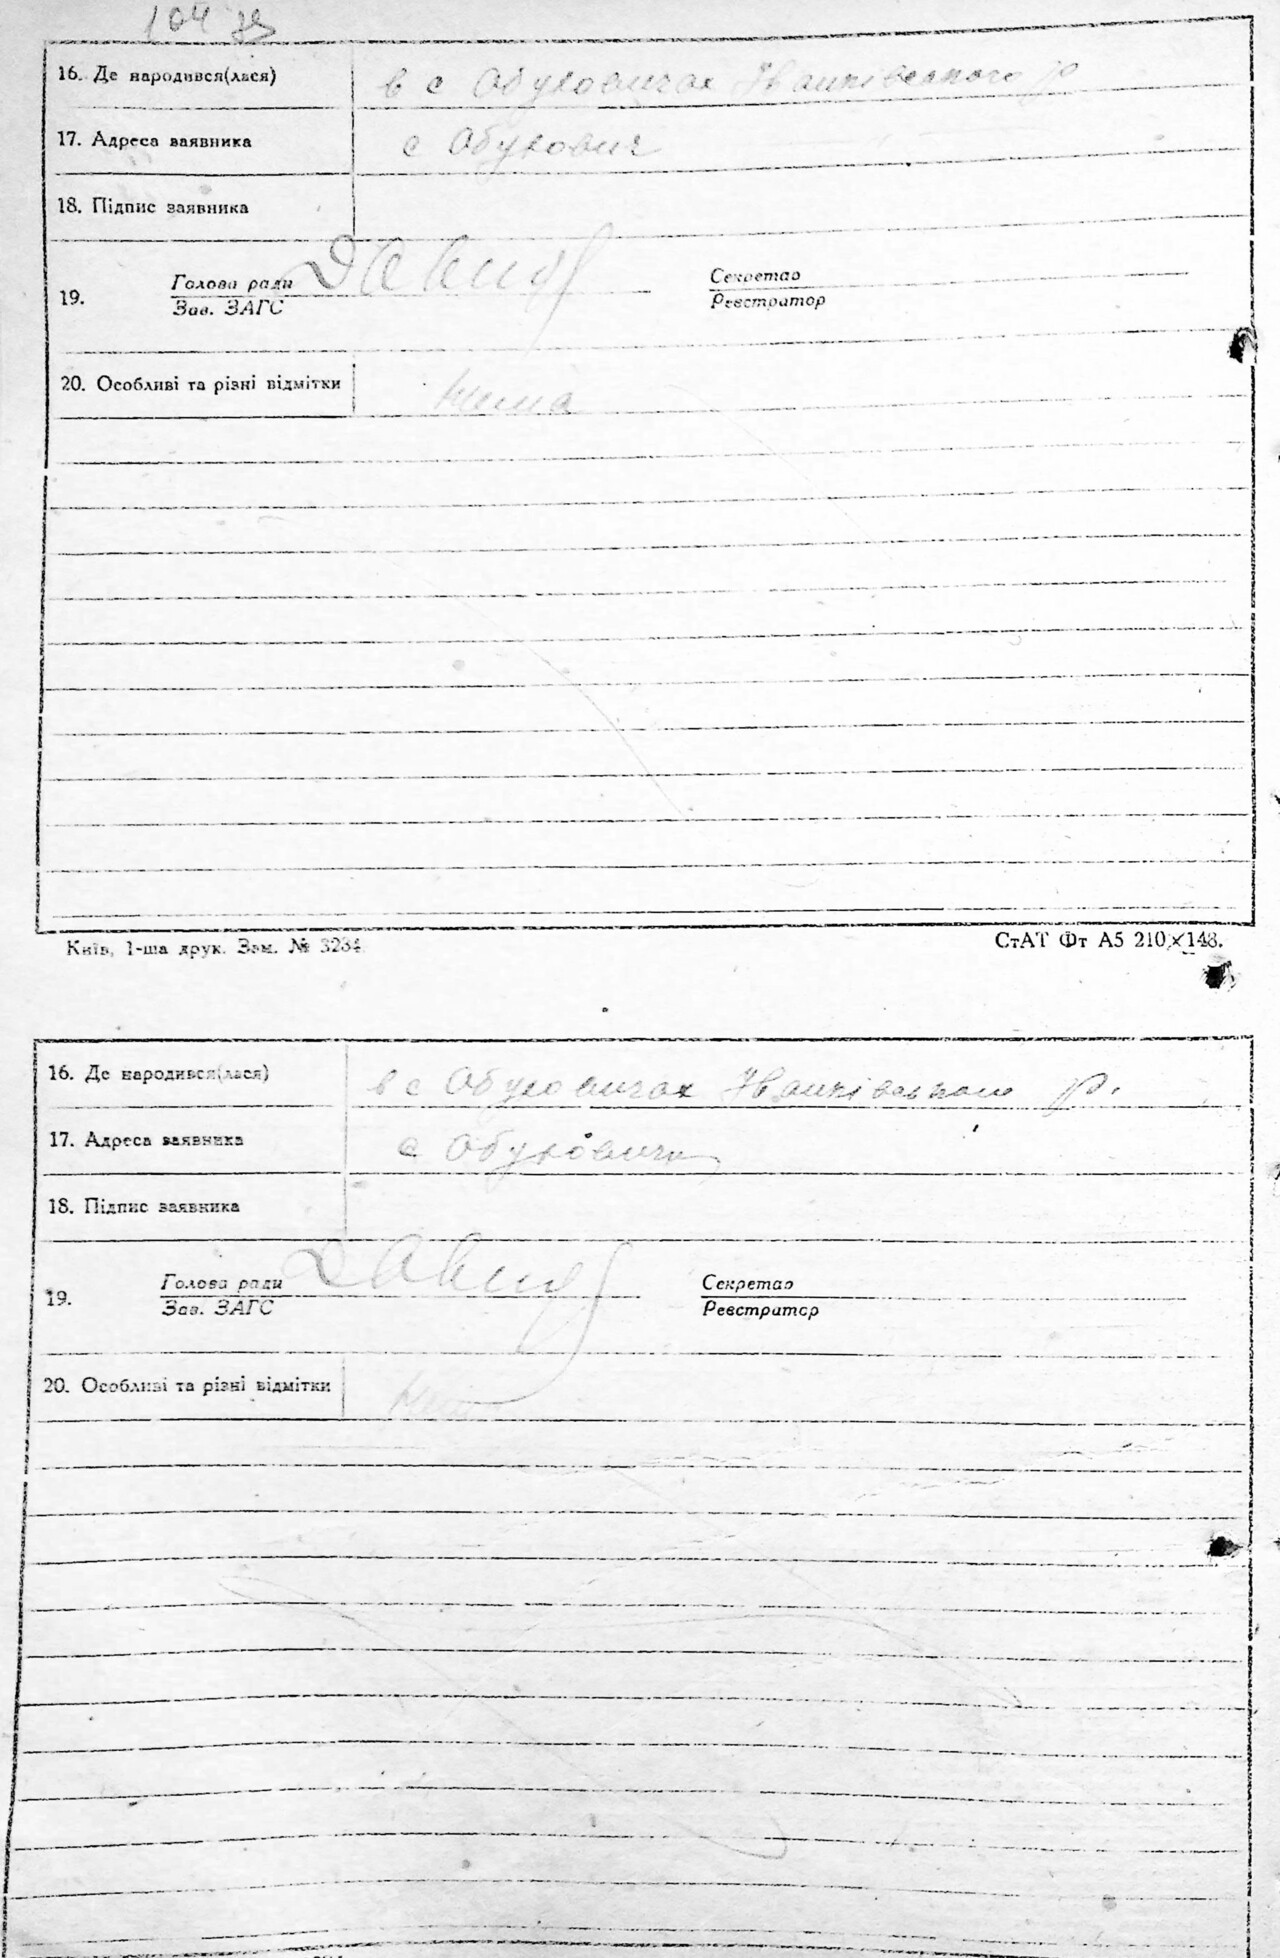 104 зв
16. Де народився(лася) в с Обуховичах Іванківського р
17. Адреса заявника с Обухович
18. Підпис заявника
Голова ради Секретар
19.
Зав. ЗАГС Реєстратор
20. Особливі та різні відмітки Нема
Київ, 1-ша друк. Зам. № 3234 СтАТ Фт А5 210×148.
16. Де народився(лася) в с Обуховичах Іванківського р.
17. Адреса заявника с Обуховичи
18. Підпис заявника
Голова ради Секретар
19.
Зав. ЗАГС Реєстратор
20. Особливі та різні відмітки